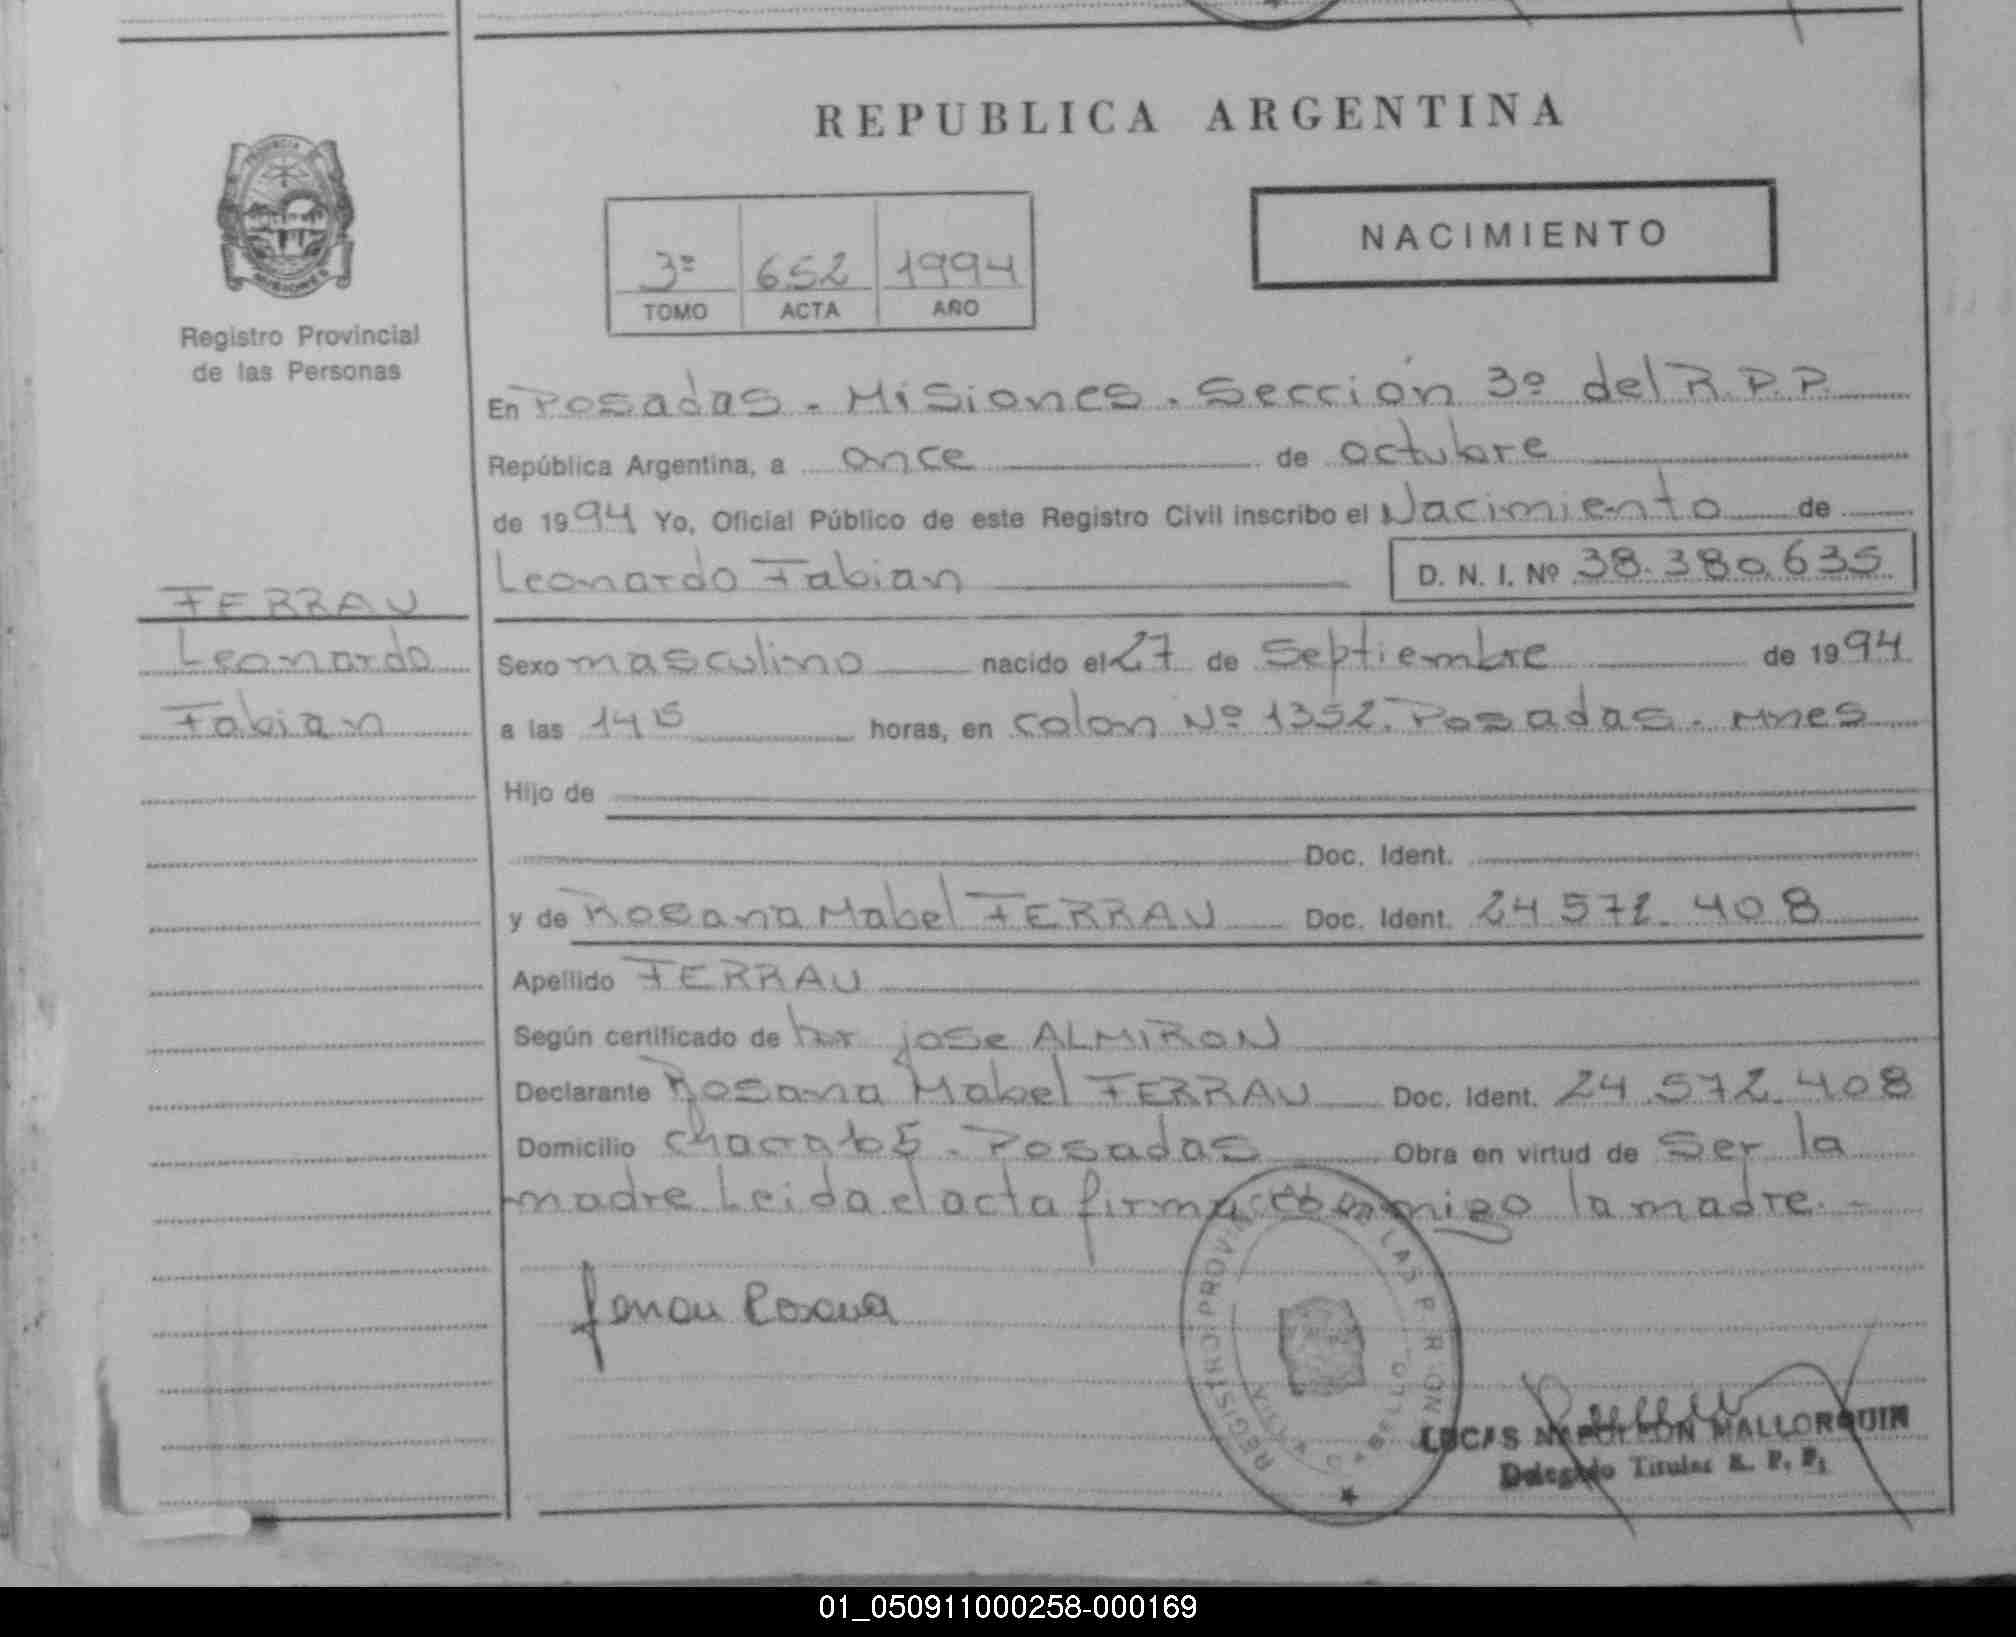 REPUBLICA ARGENTINA
NACIMIENTO
3º 652 1994
TOMO ACTA AÑO
Registro Provincial
de las Personas
En Posadas - Misiones - Sección 3º del R.P.P.
República Argentina, a once de octubre
de 1994 Yo, Oficial Público de este Registro Civil inscribo el Nacimiento de
Leonardo Fabian D. N. I. Nº 38.380.635
FERRAU
Leonardo
Fabian
Sexo masculino nacido el 27 de Septiembre de 1994
a las 14 15 horas, en colon Nº 1352. Posadas - Mnes
Hijo de
Doc. Ident.
y de Rosana Mabel FERRAU Doc. Ident. 24.572.408
Apellido FERRAU
Según certificado de jose ALMIRON
Declarante Rosana Mabel FERRAU Doc. Ident. 24.572.408
Domicilio Posadas Obra en virtud de Ser la
madre. Leida el acta firma conmigo la madre. -
Rosana
LUCAS NAPOLEON MALLORQUIN
Delegado Titular R. P. P.
01_050911000258-000169